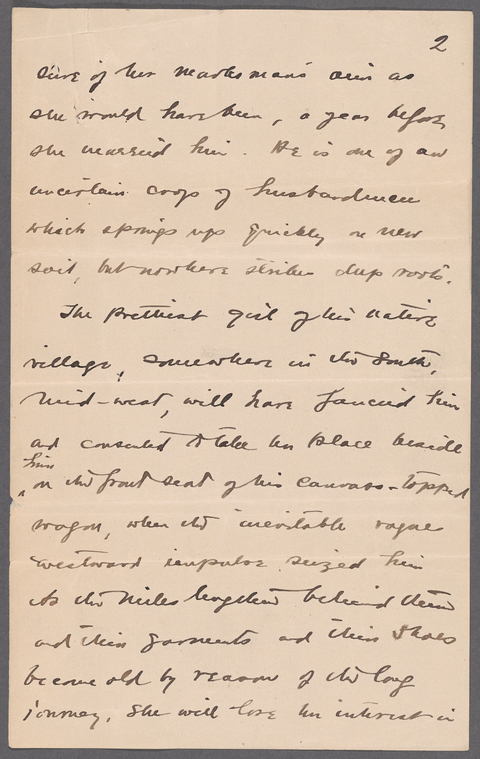 2
sure of her marksman's aim as
she would have been, a year before
she married him. He is one of an
uncertain crop of husbandmen
which springs up quickly on new
soil, but nowhere strikes deep roots.
The prettiest girl of his native
village, somewhere in the South,
Mid-west, will have fancied him
and consented to take her place beside
him
on the front seat of his canvass-topped
wagon, when the inevitable vague
westward impulse seized him
As the miles lengthen behind them
and their garments and their shoes
become old by reason of the long
journey, she will lose her interest in